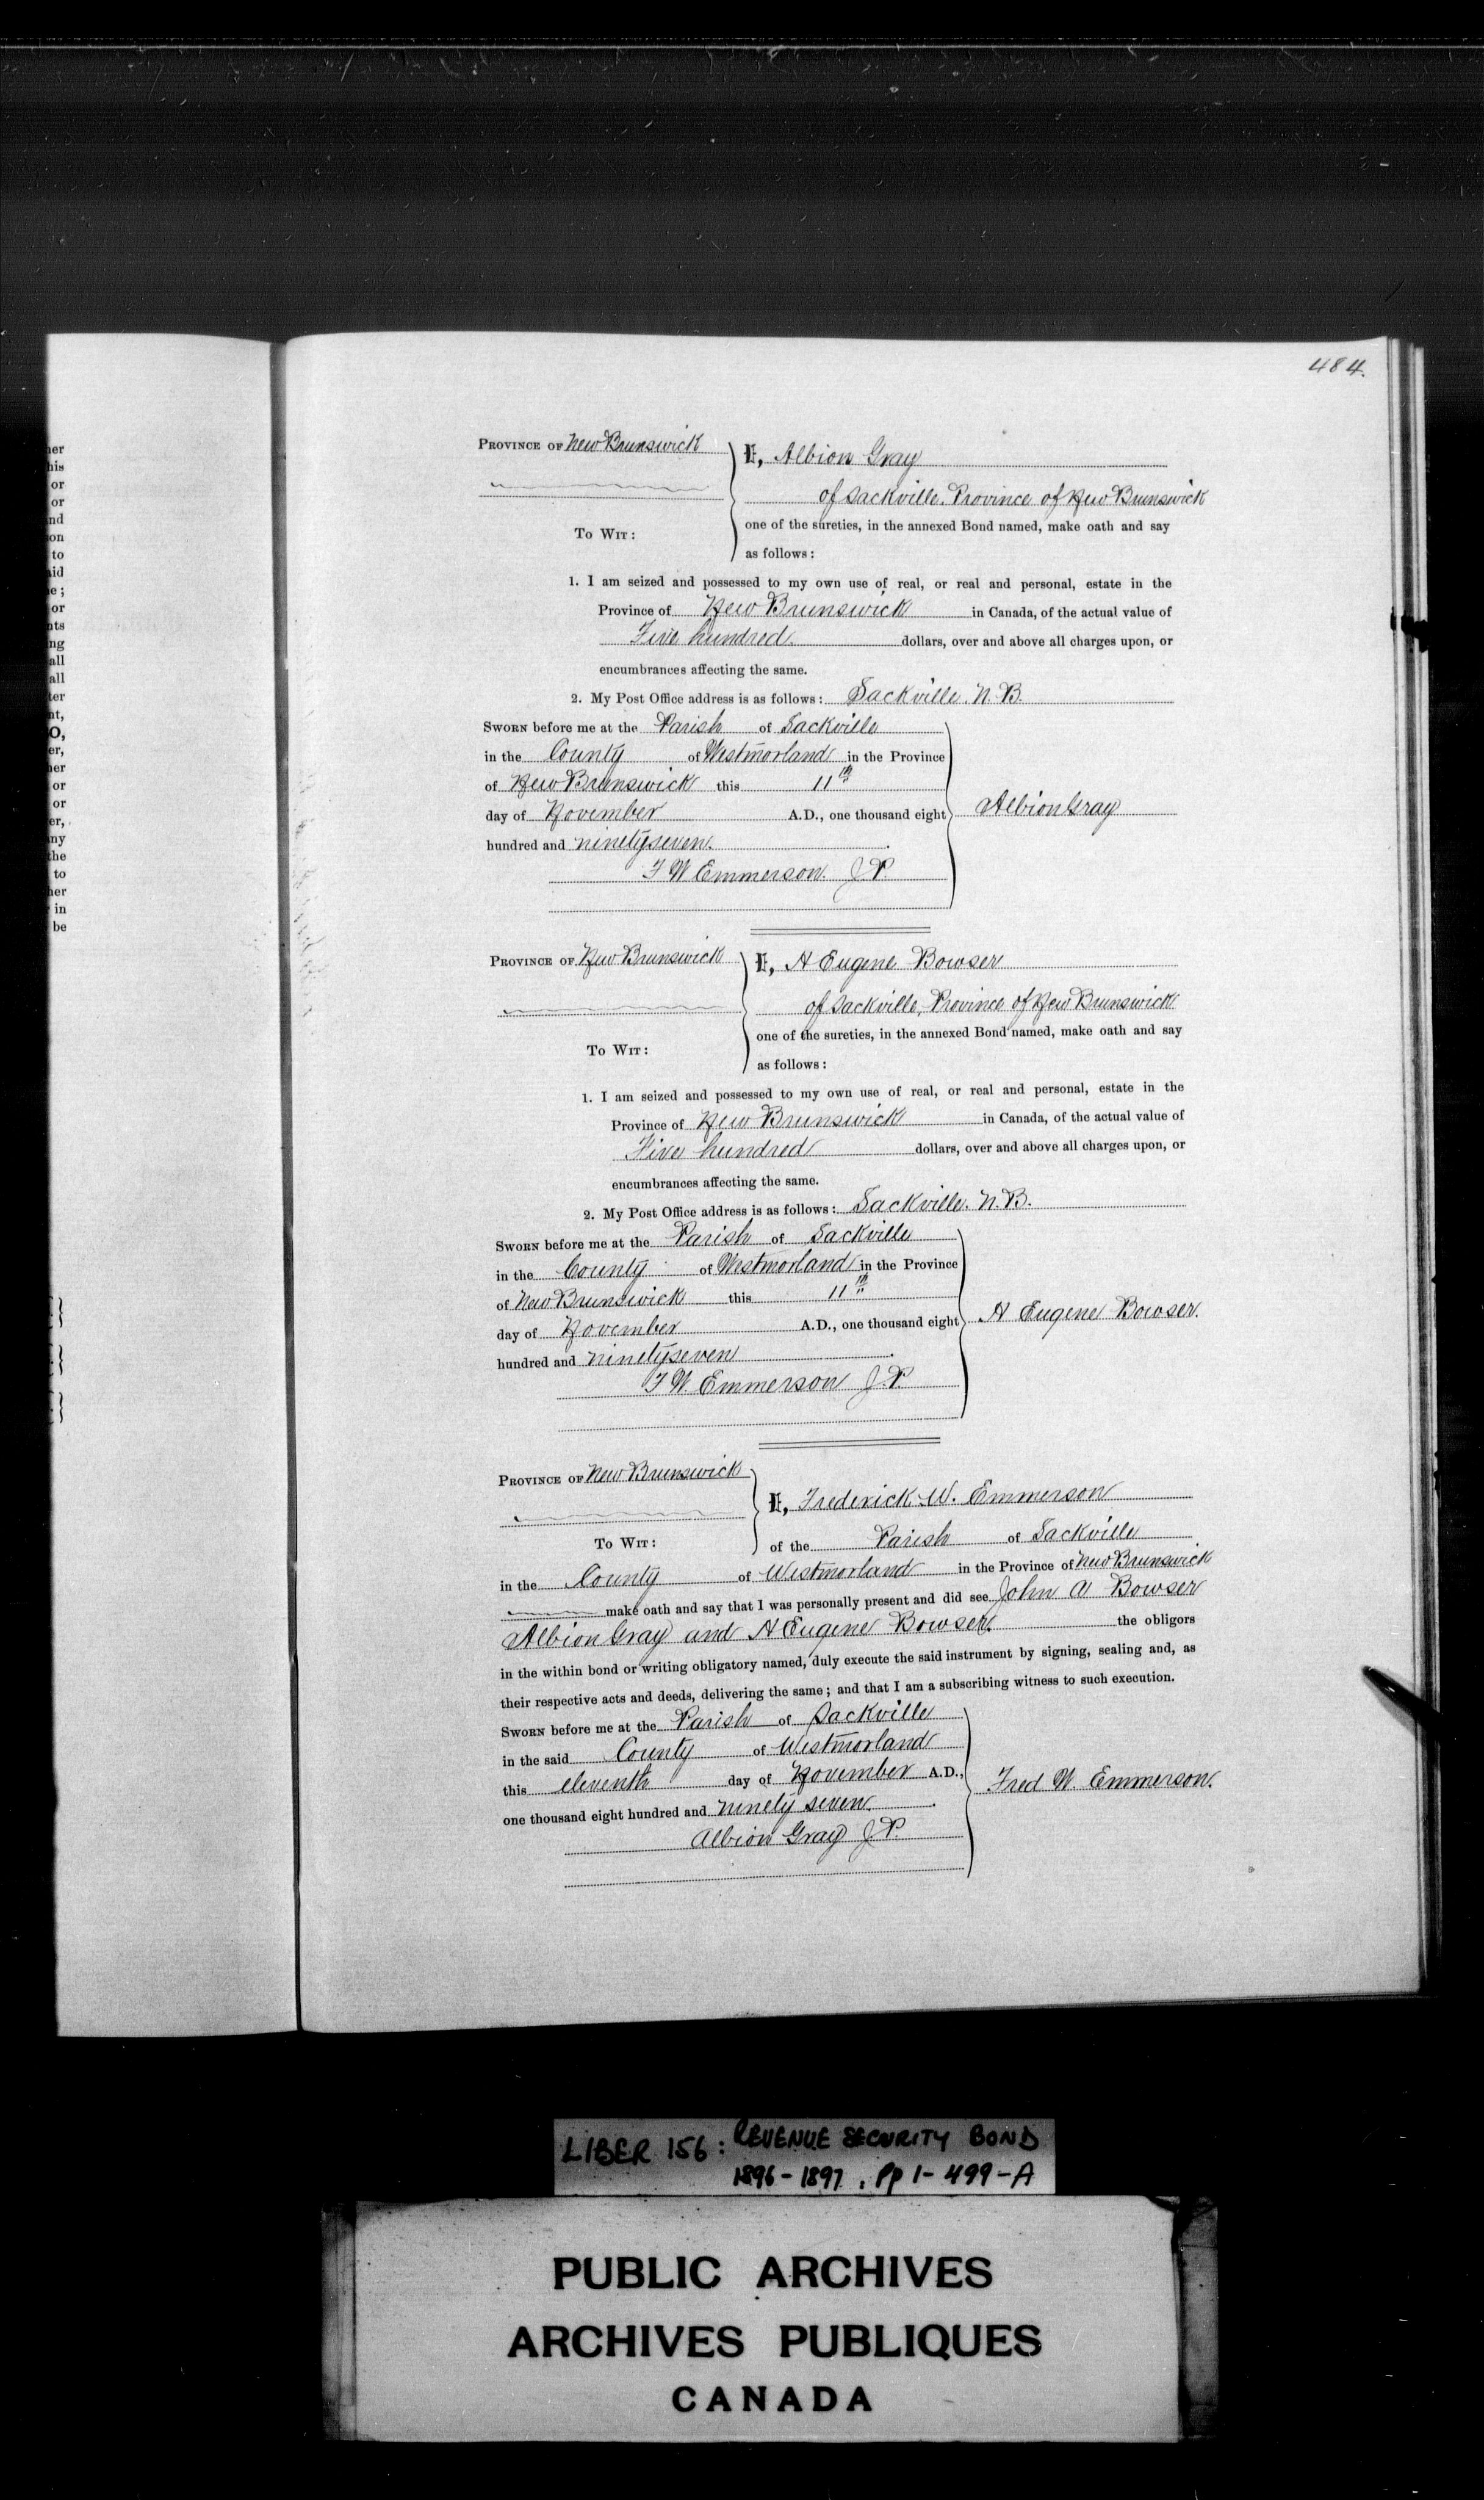 484.
PROVINCE OF New Brunswick
I, Albion Gray
of Sackville, Province of New Brunswick
TO WIT:
one of the sureties, in the annexed Bond named, make oath and say
as follows:
1. I am seized and possessed to my own use of real, or real and personal, estate in the
Province of New Brunswick in Canada, of the actual value of
Five hundred dollars, over and above all charges upon, or
encumbrances affecting the same.
2. My Post Office address is as follows: Sackville, N.B.
SWORN before me at the Parish of Sackville
in the County of Westmorland in the Province
of New Brunswick this 11th
day of November A.D., one thousand eight
hundred and ninetyseven.
Albion Gray
F W Emmerson J.P.
PROVINCE OF New Brunswick
I, A Eugene Bowser
of Sackville, Province of New Brunswick
TO WIT:
one of the sureties, in the annexed Bond named, make oath and say
as follows:
1. I am seized and possessed to my own use of real, or real and personal, estate in the
Province of New Brunswick in Canada, of the actual value of
Five hundred dollars, over and above all charges upon, or
encumbrances affecting the same.
2. My Post Office address is as follows: Sackville, N.B.
SWORN before me at the Parish of Sackville
in the County of Westmorland in the Province
of New Brunswick this 11th
day of November A.D., one thousand eight
hundred and ninetyseven
A Eugene Bowser.
F W. Emmerson J.P.
PROVINCE OF New Brunswick
I, Frederick W. Emmerson
TO WIT:
of the Parish of Sackville
in the County of Westmorland in the Province of New Brunswick
make oath and say that I was personally present and did see John A Bowser
Albion Gray and A Eugene Bowser. the obligors
in the within bond or writing obligatory named, duly execute the said instrument by signing, sealing and, as
their respective acts and deeds, delivering the same; and that I am a subscribing witness to such execution.
SWORN before me at the Parish of Sackville
in the said County of Westmorland
this eleventh day of November A.D.,
one thousand eight hundred and ninety seven.
Fred W. Emmerson.
Albion Gray J.P.
LIBER 156: REVENUE SECURITY BOND
1896-1897, Pp 1-499-A
PUBLIC ARCHIVES
ARCHIVES PUBLIQUES
CANADA